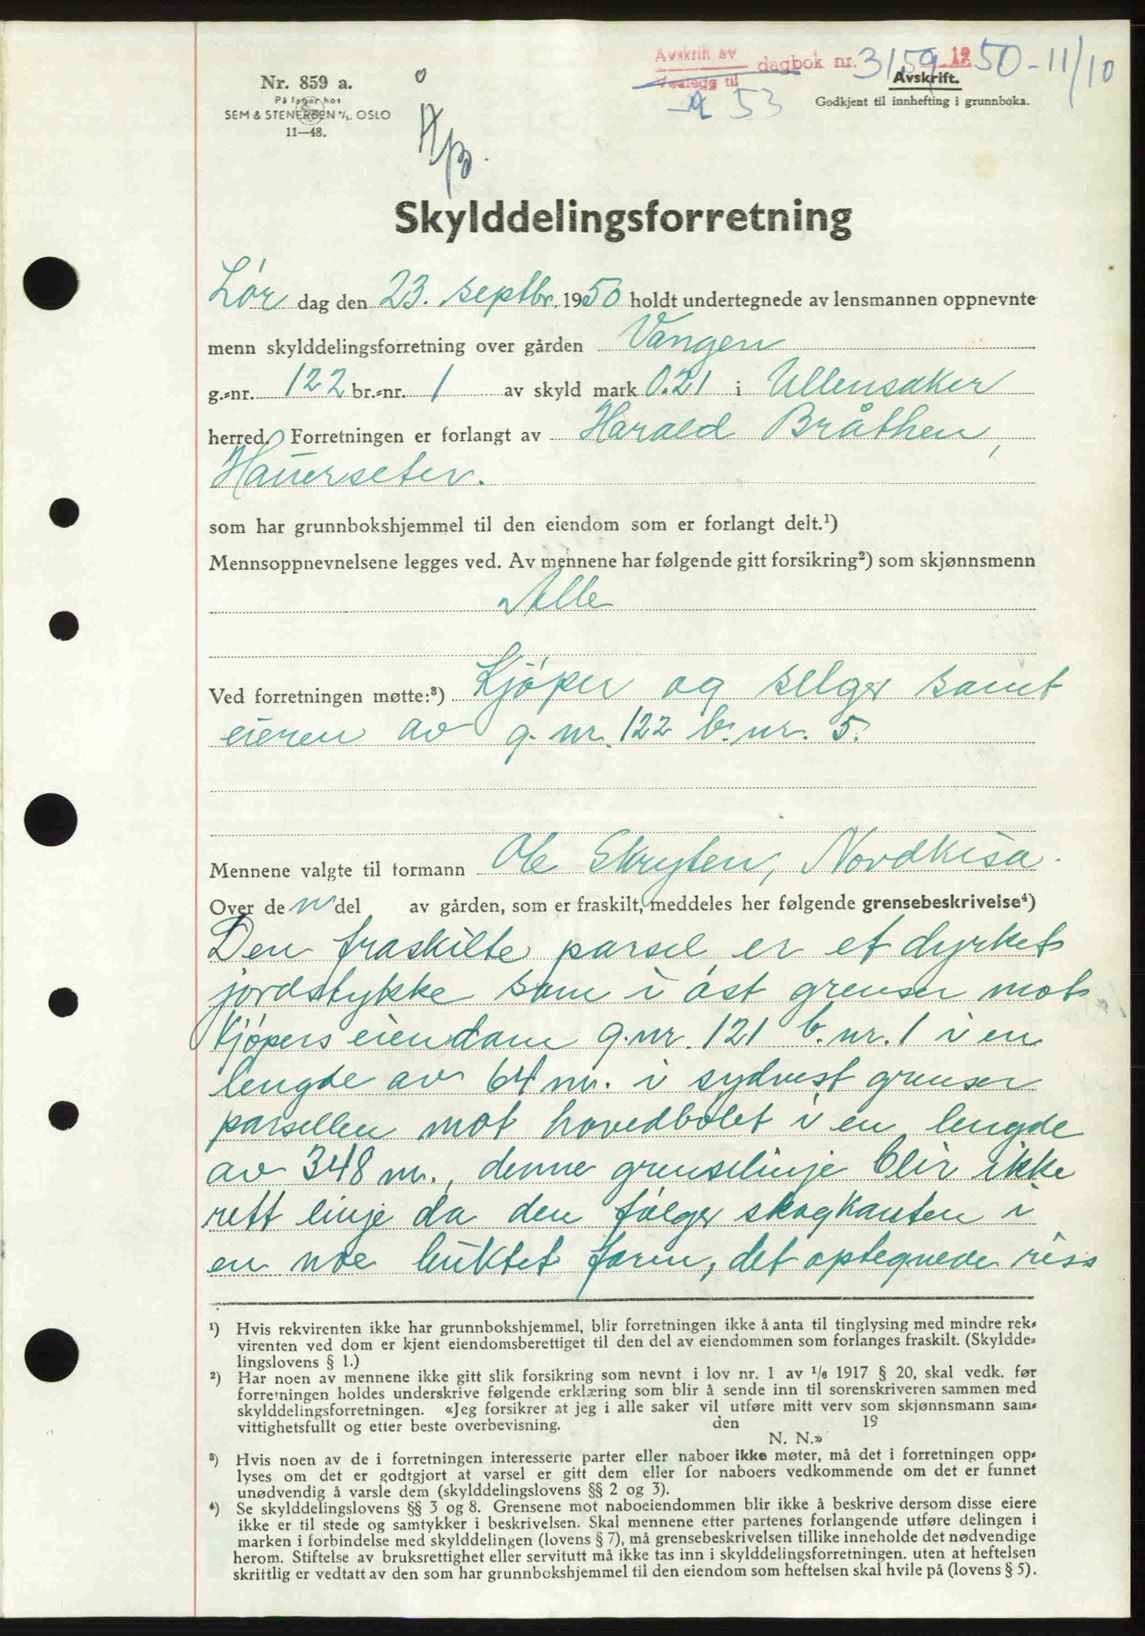 Nr. 859 a.
På lager hos
SEM & STENERSEN A/S, OSLO
11—48.
Avskrift av
Vedlegg til
dagbok nr. 3159 1950-11/10
53
Avskrift.
Godkjent til innhefting i grunnboka.
Skylddelingsforretning
Lør dag den 23. septbr. 1950 holdt undertegnede av lensmannen oppnevnte
menn skylddelingsforretning over gården Vangen
g.-nr. 122 br.-nr. 1 av skyld mark 0.21 i Ullensaker
herred. Forretningen er forlangt av Harald Bråthen,
Hauerseter.
som har grunnbokshjemmel til den eiendom som er forlangt delt.¹)
Mennsoppnevnelsene legges ved. Av mennene har følgende gitt forsikring²) som skjønnsmenn
Alle
Ved forretningen møtte:³) Kjøper og selger samt
eieren av g. nr. 122 b. nr. 5.
Mennene valgte til formann Ole Skryten, Nordkisa.
Over den del av gården, som er fraskilt, meddeles her følgende grensebeskrivelse⁴)
Den fraskilte parsel er et dyrket
jordstykke som i øst grenser mot
kjøpers eiendom g.nr. 121 b.nr. 1 i en
lengde av 64 m. i sydvest grenser
parsellen mot hovedbølet i en lengde
av 348 m., denne grenselinje blir ikke
rett linje da den følger skogkanten i
en noe buktet form, det optegnede riss
¹) Hvis rekvirenten ikke har grunnbokshjemmel, blir forretningen ikke å anta til tinglysing med mindre rek-
virenten ved dom er kjent eiendomsberettiget til den del av eiendommen som forlanges fraskilt. (Skyldde-
lingslovens § 1.)
²) Har noen av mennene ikke gitt slik forsikring som nevnt i lov nr. 1 av 1/6 1917 § 20, skal vedk. før
forretningen holdes underskrive følgende erklæring som blir å sende inn til sorenskriveren sammen med
skylddelingsforretningen. «Jeg forsikrer at jeg i alle saker vil utføre mitt verv som skjønnsmann sam-
vittighetsfullt og etter beste overbevisning. den 19
N. N.»
³) Hvis noen av de i forretningen interesserte parter eller naboer ikke møter, må det i forretningen opp-
lyses om det er godtgjort at varsel er gitt dem eller for naboers vedkommende om det er funnet
unødvendig å varsle dem (skylddelingslovens §§ 2 og 3).
⁴) Se skylddelingslovens §§ 3 og 8. Grensene mot naboeiendommen blir ikke å beskrive dersom disse eiere
ikke er til stede og samtykker i beskrivelsen. Skal mennene etter partenes forlangende utføre delingen i
marken i forbindelse med skylddelingen (lovens § 7), må grensebeskrivelsen tillike inneholde det nødvendige
herom. Stiftelse av bruksrettighet eller servitutt må ikke tas inn i skylddelingsforretningen. uten at heftelsen
skriftlig er vedtatt av den som har grunnbokshjemmel til den eiendom som heftelsen skal hvile på (lovens § 5).